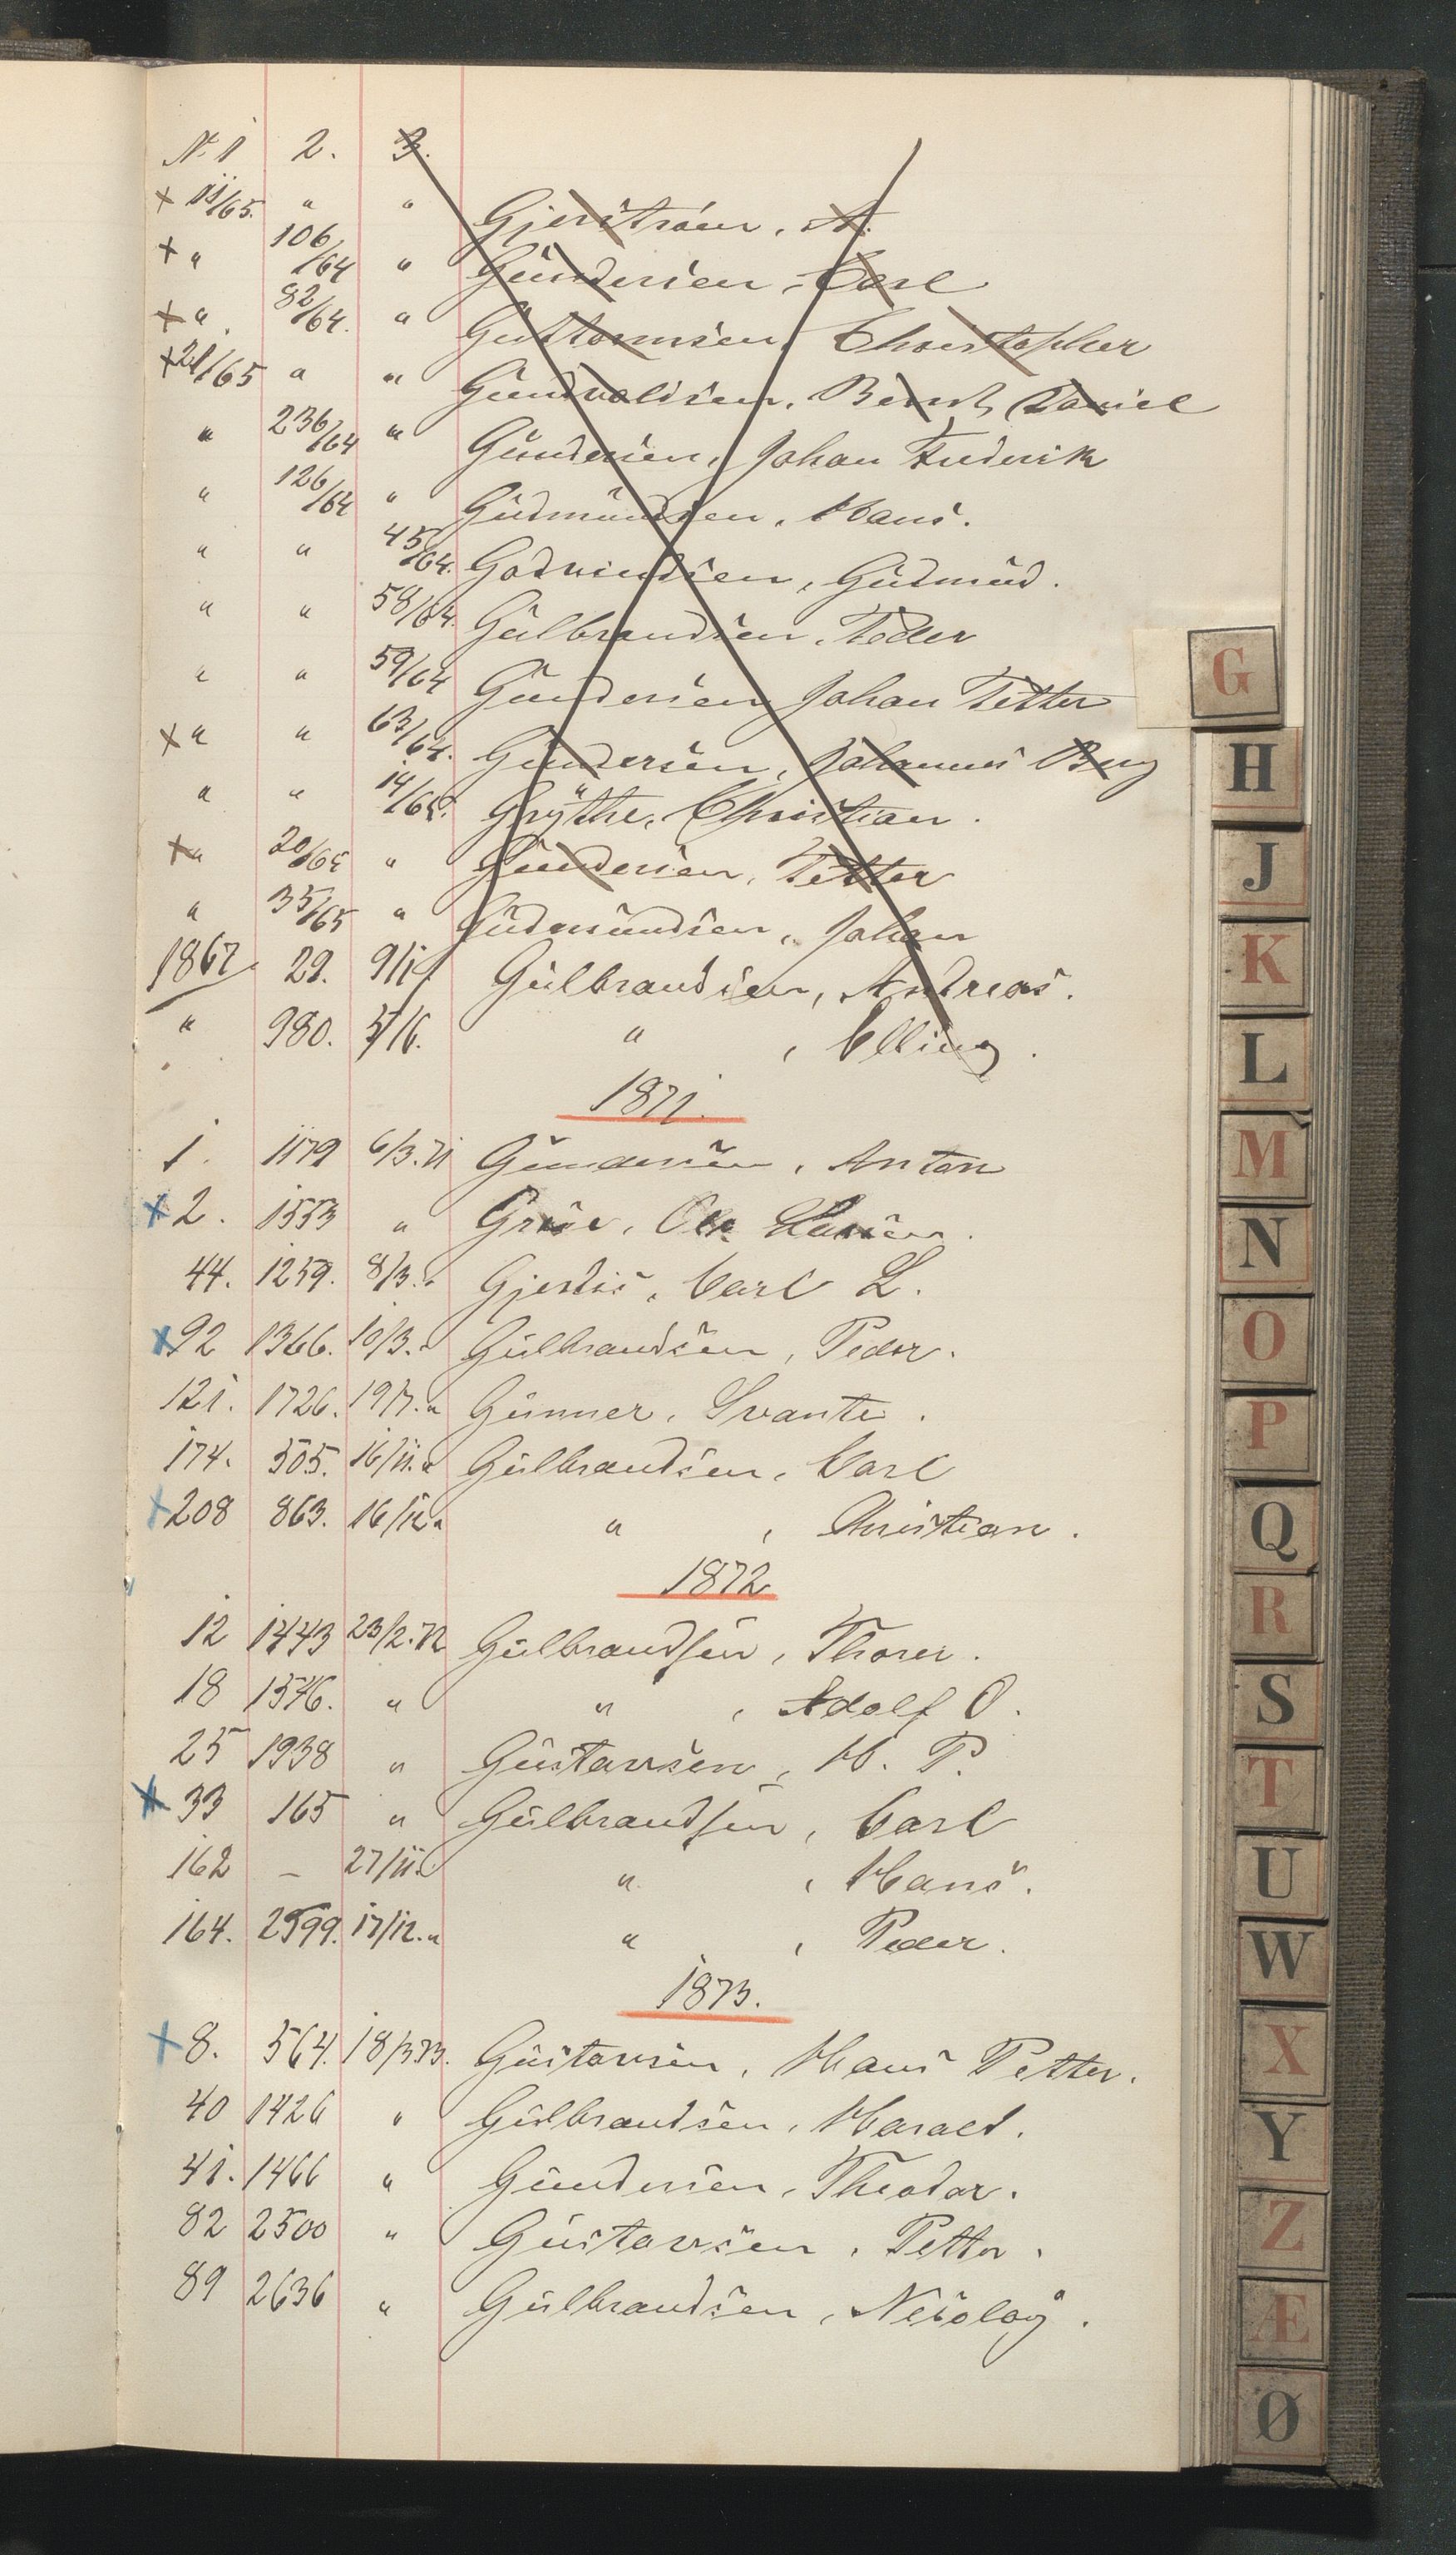 No 1 2. 3.
+ 11/65. " " Gjerström, A.
+ " 106/64 " Gundersen, Carl
+ " 82/64. " Guttormsen, Christopher
+ 21/65 " " Gundvaldsen, Bernt Daniel
" 236/64 " Gundersen, Johan Frederik
" 126/64 " Gudmundsen, Hans.
" " 45/64. Godvindsen, Gudmud.
" " 58/64. Gulbrandsen, Peder
" " 59/64 Gundersen, Johan Petter
+ " " 63/64. Gundersen, Johannes
" " 14/65. Grythe, Christian.
+ " 20/65 " Gundersen, Petter
" 35/65 " Gudmundsen, Johan
1867 29. 9/1 Gulbrandsen, Andreas.
" 980. /6. " , Elling.
1871.
1. 1179 6/3.71 Gundersen, Anton
+ 2. 1553 " Ole Larsen.
44. 1259. 8/3. " Carl L.
+ 92 1366. 10/3. " Gulbrandsen, Peder.
121. 1726. 19/7. " Gunner, Svante.
174. 505. 16/11. " Gulbrandsen, Carl
+ 208 863. 16/12 " " , Christian.
1872
12 1443 23/2.72 Gulbrandsen, Thorer.
18 1546. " " , Adolf O.
25 1938 " Gustavsen, H. P.
+ 33 165 " Gulbrandsen, Carl
162 – 27/11. " " , Hans.
164. 2599. 17/12. " " , Peder.
1873.
+ 8. 564. 18/3 73. Gustavsen, Hans Petter.
40 1426 " Gulbrandsen, Harald.
41. 1466 " Gundersen, Theodor.
82 2500 " Gustavsen, Petter.
89 2636 " Gulbrandsen, Nicolay.
G
H
J
K
L
M
N
O
P
Q
R
S
T
U
W
X
Y
Z
Æ
Ø